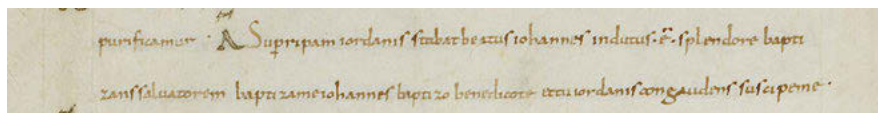 purificamur. A Sup ripam iordanis stabat beatus iohannes indutus. ē. splendore bapti
zans saluatorem baptizame iohannes baptizo benedicote ettu iordanis congaudens suscipeme.